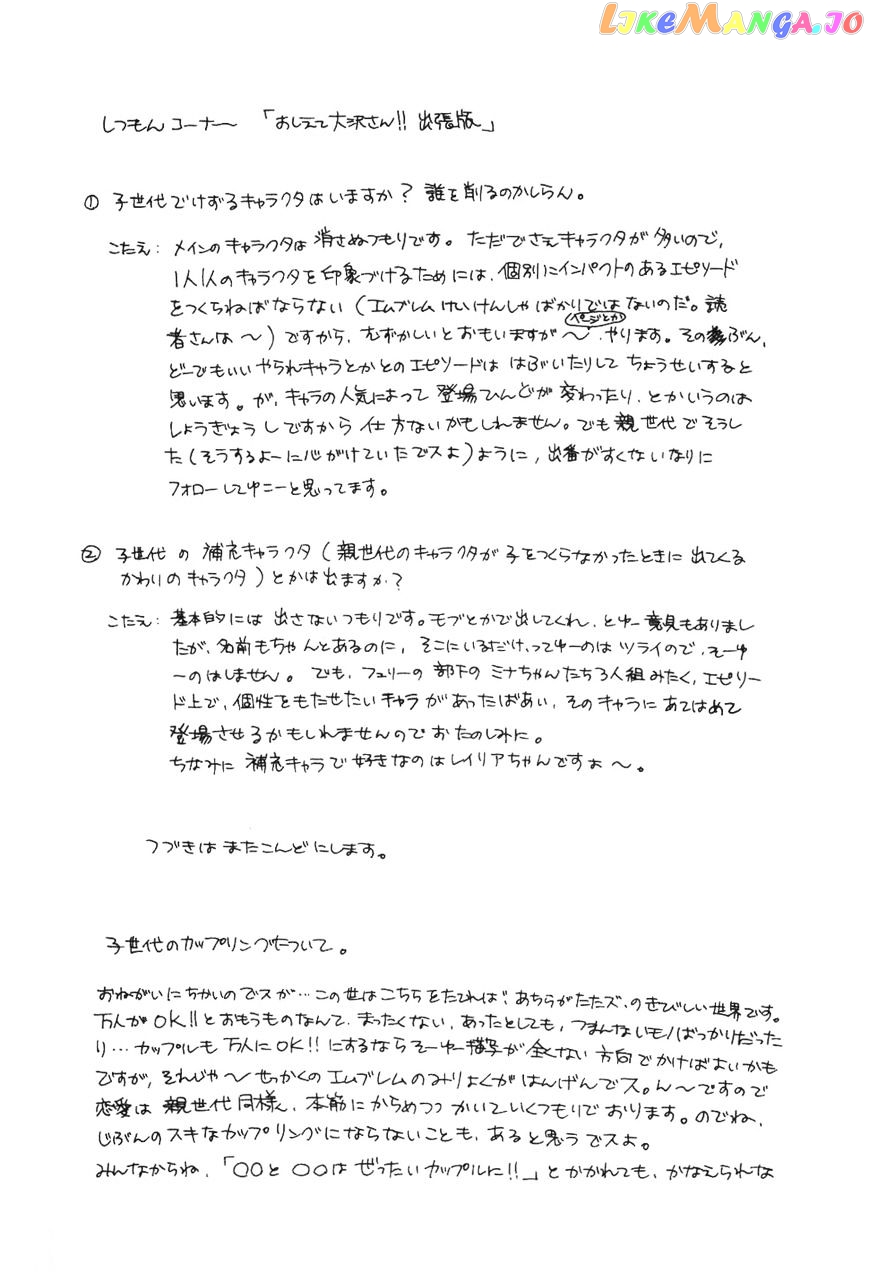 LIKEMANGA.IO
しつもんコーナー 「おしえて大沢さん!! 出張版」
① 子世代でけずるキャラクタはいますか? 誰を削るのかしらん。
こたえ: メインのキャラクタは消さぬつもりです。ただでさえキャラクタが多いので,
1人1人のキャラクタを印象づけるためには, 個別にインパクトのあるエピソード
をつくらねばならない(エムブレムけいけんしゃばかりではないのだ。読
者さんは〜)ですから, むずかしいとおもいますが(ページとか)〜, やります。そのぶん,
どーでもいいやられキャラとかとのエピソードは はぶいたりして ちょうせいすると
思います。が, キャラの人気によって 登場ひんどが 変わったり, とかいうのは
しょうぎょうしですから 仕方ないかもしれません。でも親世代でそうし
た(そうするよーに心がけていたでスよ)ように, 出番がすくないなりに
フォローしてゆこーと思ってます。
② 子世代の 補充キャラクタ(親世代のキャラクタが子をつくらなかったときに出てくる
かわりのキャラクタ)とかは出ますか?
こたえ: 基本的には 出さないつもりです。モブとかで出してくれ, とゆー意見もありまし
たが, 名前もちゃんとあるのに, そこにいるだけ, ってゆーのは ツライので, そーゆ
ーのはしません。でも, フュリーの 部下の ミナちゃんたち3人組みたく, エピソー
ド上で, 個性をもたせたいキャラがあったばあい, そのキャラに あてはめて
登場させるかもしれませんのでおたのしみに。
ちなみに 補充キャラで好きなのはレイリアちゃんですよ〜。
つづきは またこんどにします。
子世代のカップリングについて。
おねがいにちかいのでスが…この世はこちらをたてれば, あちらがたたズ, のきびしい世界です。
万人がOK!!とおもうものなんて, まったくない, あったとしても, つまんないモノばっかりだった
り…カップルも万人にOK!!にするならそーゆー描写が全くない方向でかけばよいかも
ですが, それじゃ〜せっかくのエムブレムのみりょくがはんげんでス。ん〜ですので
恋愛は 親世代同様, 本筋にからめつつ かいていくつもりでおります。のでね,
じぶんのスキなカップリングにならないことも, あると思うでスよ。
みんなからね, 「○○と○○はぜったいカップルに!!」とかかれても, かなえられな